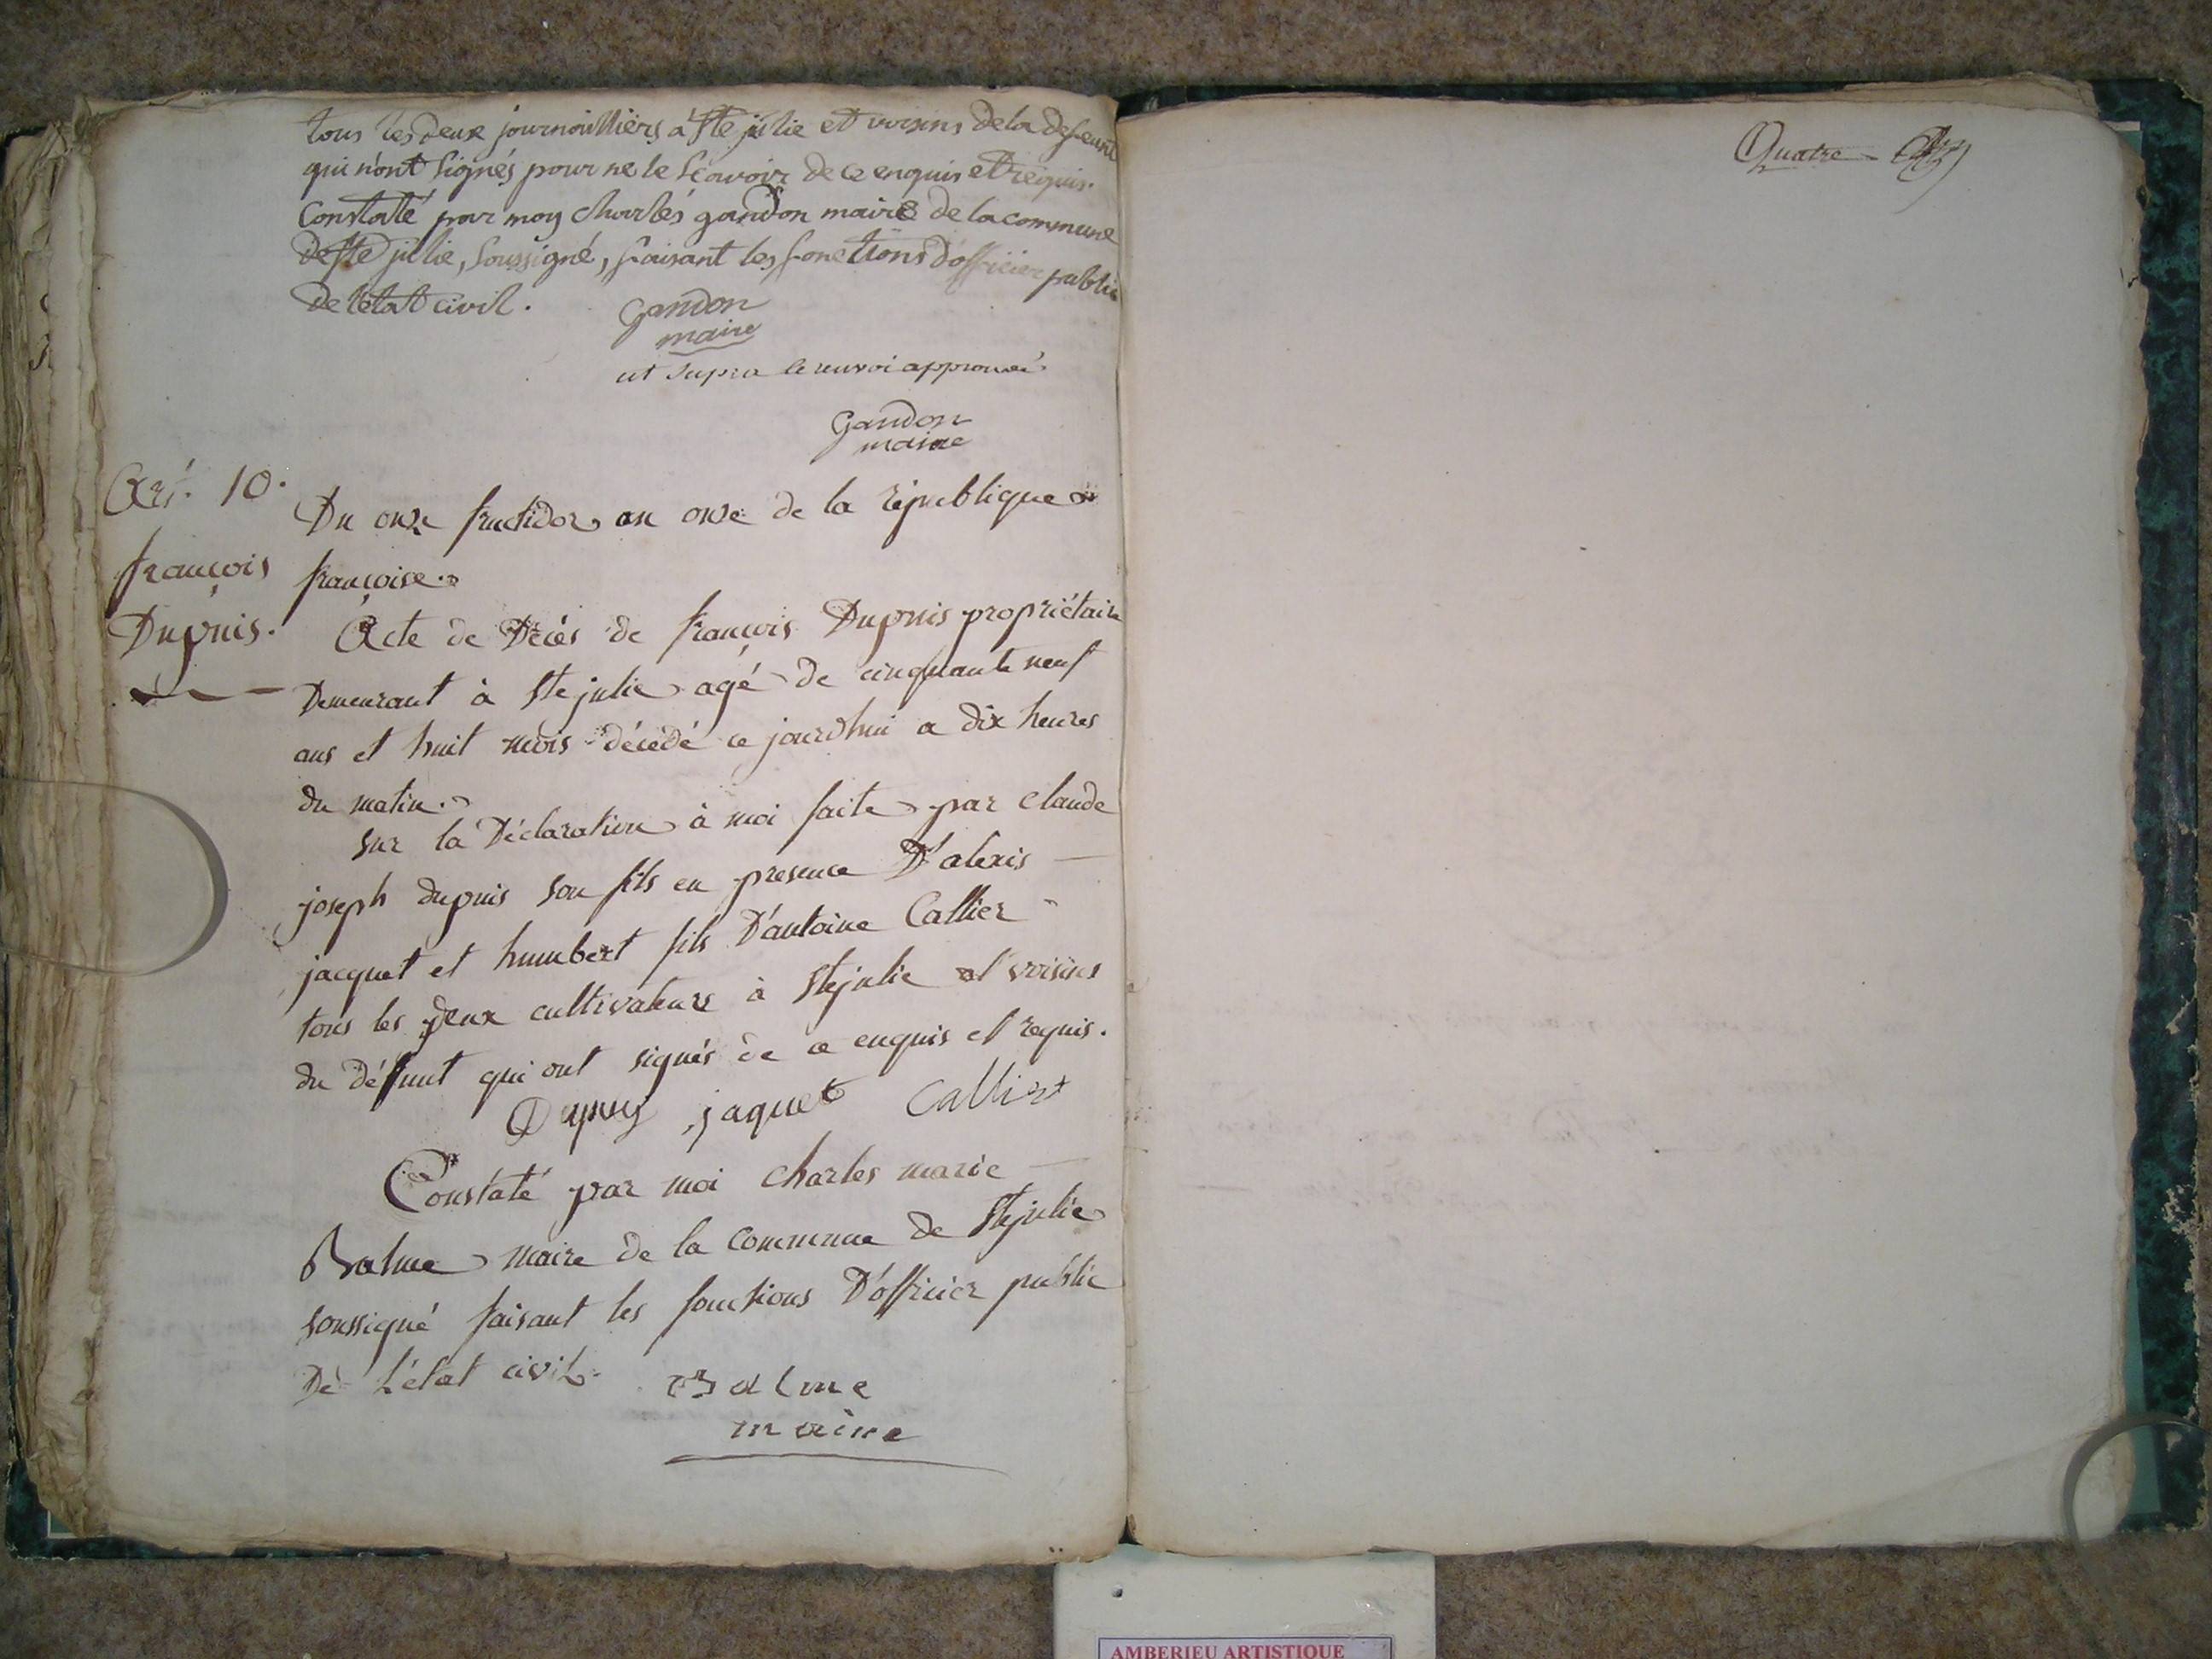 tous les deux journoilliers a Ste julie et voisins de la defeunte
qui n'ont Signés pour ne le Scavoir de ce enquis et requis.
Constaté par moy Charles gandon maire de la commune
de Ste julie, Soussigné, faisant les fonctions d'officier public
de l'état civil.
Gandon
maire
ut supra le renvoi approuvé.
Gandon
maire
Art. 10.
françois
Dupuis.
Du onze fructidor an onze de la république
françoise.
Acte de Décès de françois Dupuis propriétaire
Demeurant à Ste julie agé de cinquante neuf
ans et huit mois décédé ce jourdhui a dix heures
du matin.
sur la Déclaration à moi faite par claude
joseph dupuis son fils en presence D'alexis
jacquet et humbert fils D'antoine Callier
tous les deux cultivateurs à Ste julie et voisins
du défunt qui ont signés de ce enquis et requis.
Dupuy jaquet Callier
Constaté par moi charles marie
Balme maire de la commune de Ste julie
soussigné faisant les fonctions D'officier public
De L'état civil.
Balme
maire
Quatre
AMBERIEU ARTISTIQUE